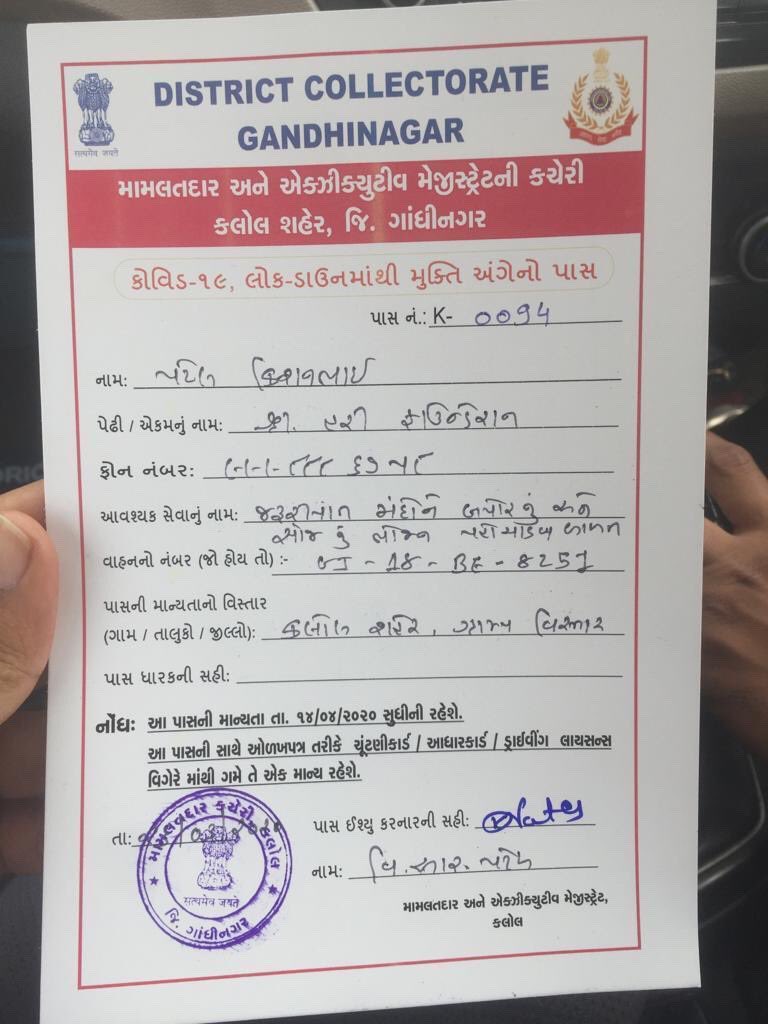 DISTRICT COLLECTORATE
GANDHINAGAR
सत्यमेव जयते
મામલતદાર અને એક્ઝીક્યુટીવ મેજીસ્ટ્રેટની કચેરી
કલોલ શહેર, જિ. ગાંધીનગર
કોવિડ-૧૯, લોક-ડાઉનમાંથી મુક્તિ અંગેનો પાસ
પાસ નં.: K- 0094
નામ: પટેલ
પેઢી / એકમનું નામ: શ્રી. હરી ફાઉન્ડેશન
ફોન નંબર:
આવશ્યક સેવાનું નામ: જરૂરીયાત મંદોને બપોરનું અને
સાંજ નું
વાહનનો નંબર (જો હોય તો) :- GJ - 18 - BE - 8251
પાસની માન્યતાનો વિસ્તાર
(ગામ / તાલુકો / જીલ્લો): કલોલ શહેર, ગ્રામ્ય વિસ્તાર
પાસ ધારકની સહી:
નોંધ: આ પાસની માન્યતા તા. ૧૪/૦૪/૨૦૨૦ સુધીની રહેશે.
આ પાસની સાથે ઓળખપત્ર તરીકે ચૂંટણીકાર્ડ / આધારકાર્ડ / ડ્રાઈવીંગ લાયસન્સ
વિગેરે માંથી ગમે તે એક માન્ય રહેશે.
મામલતદાર કચેરી કલોલ
તા:
પાસ ઈશ્યુ કરનારની સહી:
सत्यमेव जयते
જિ. ગાંધીનગર
નામ: વિ. આર. પટેલ
મામલતદાર અને એક્ઝીક્યુટીવ મેજીસ્ટ્રેટ,
કલોલ